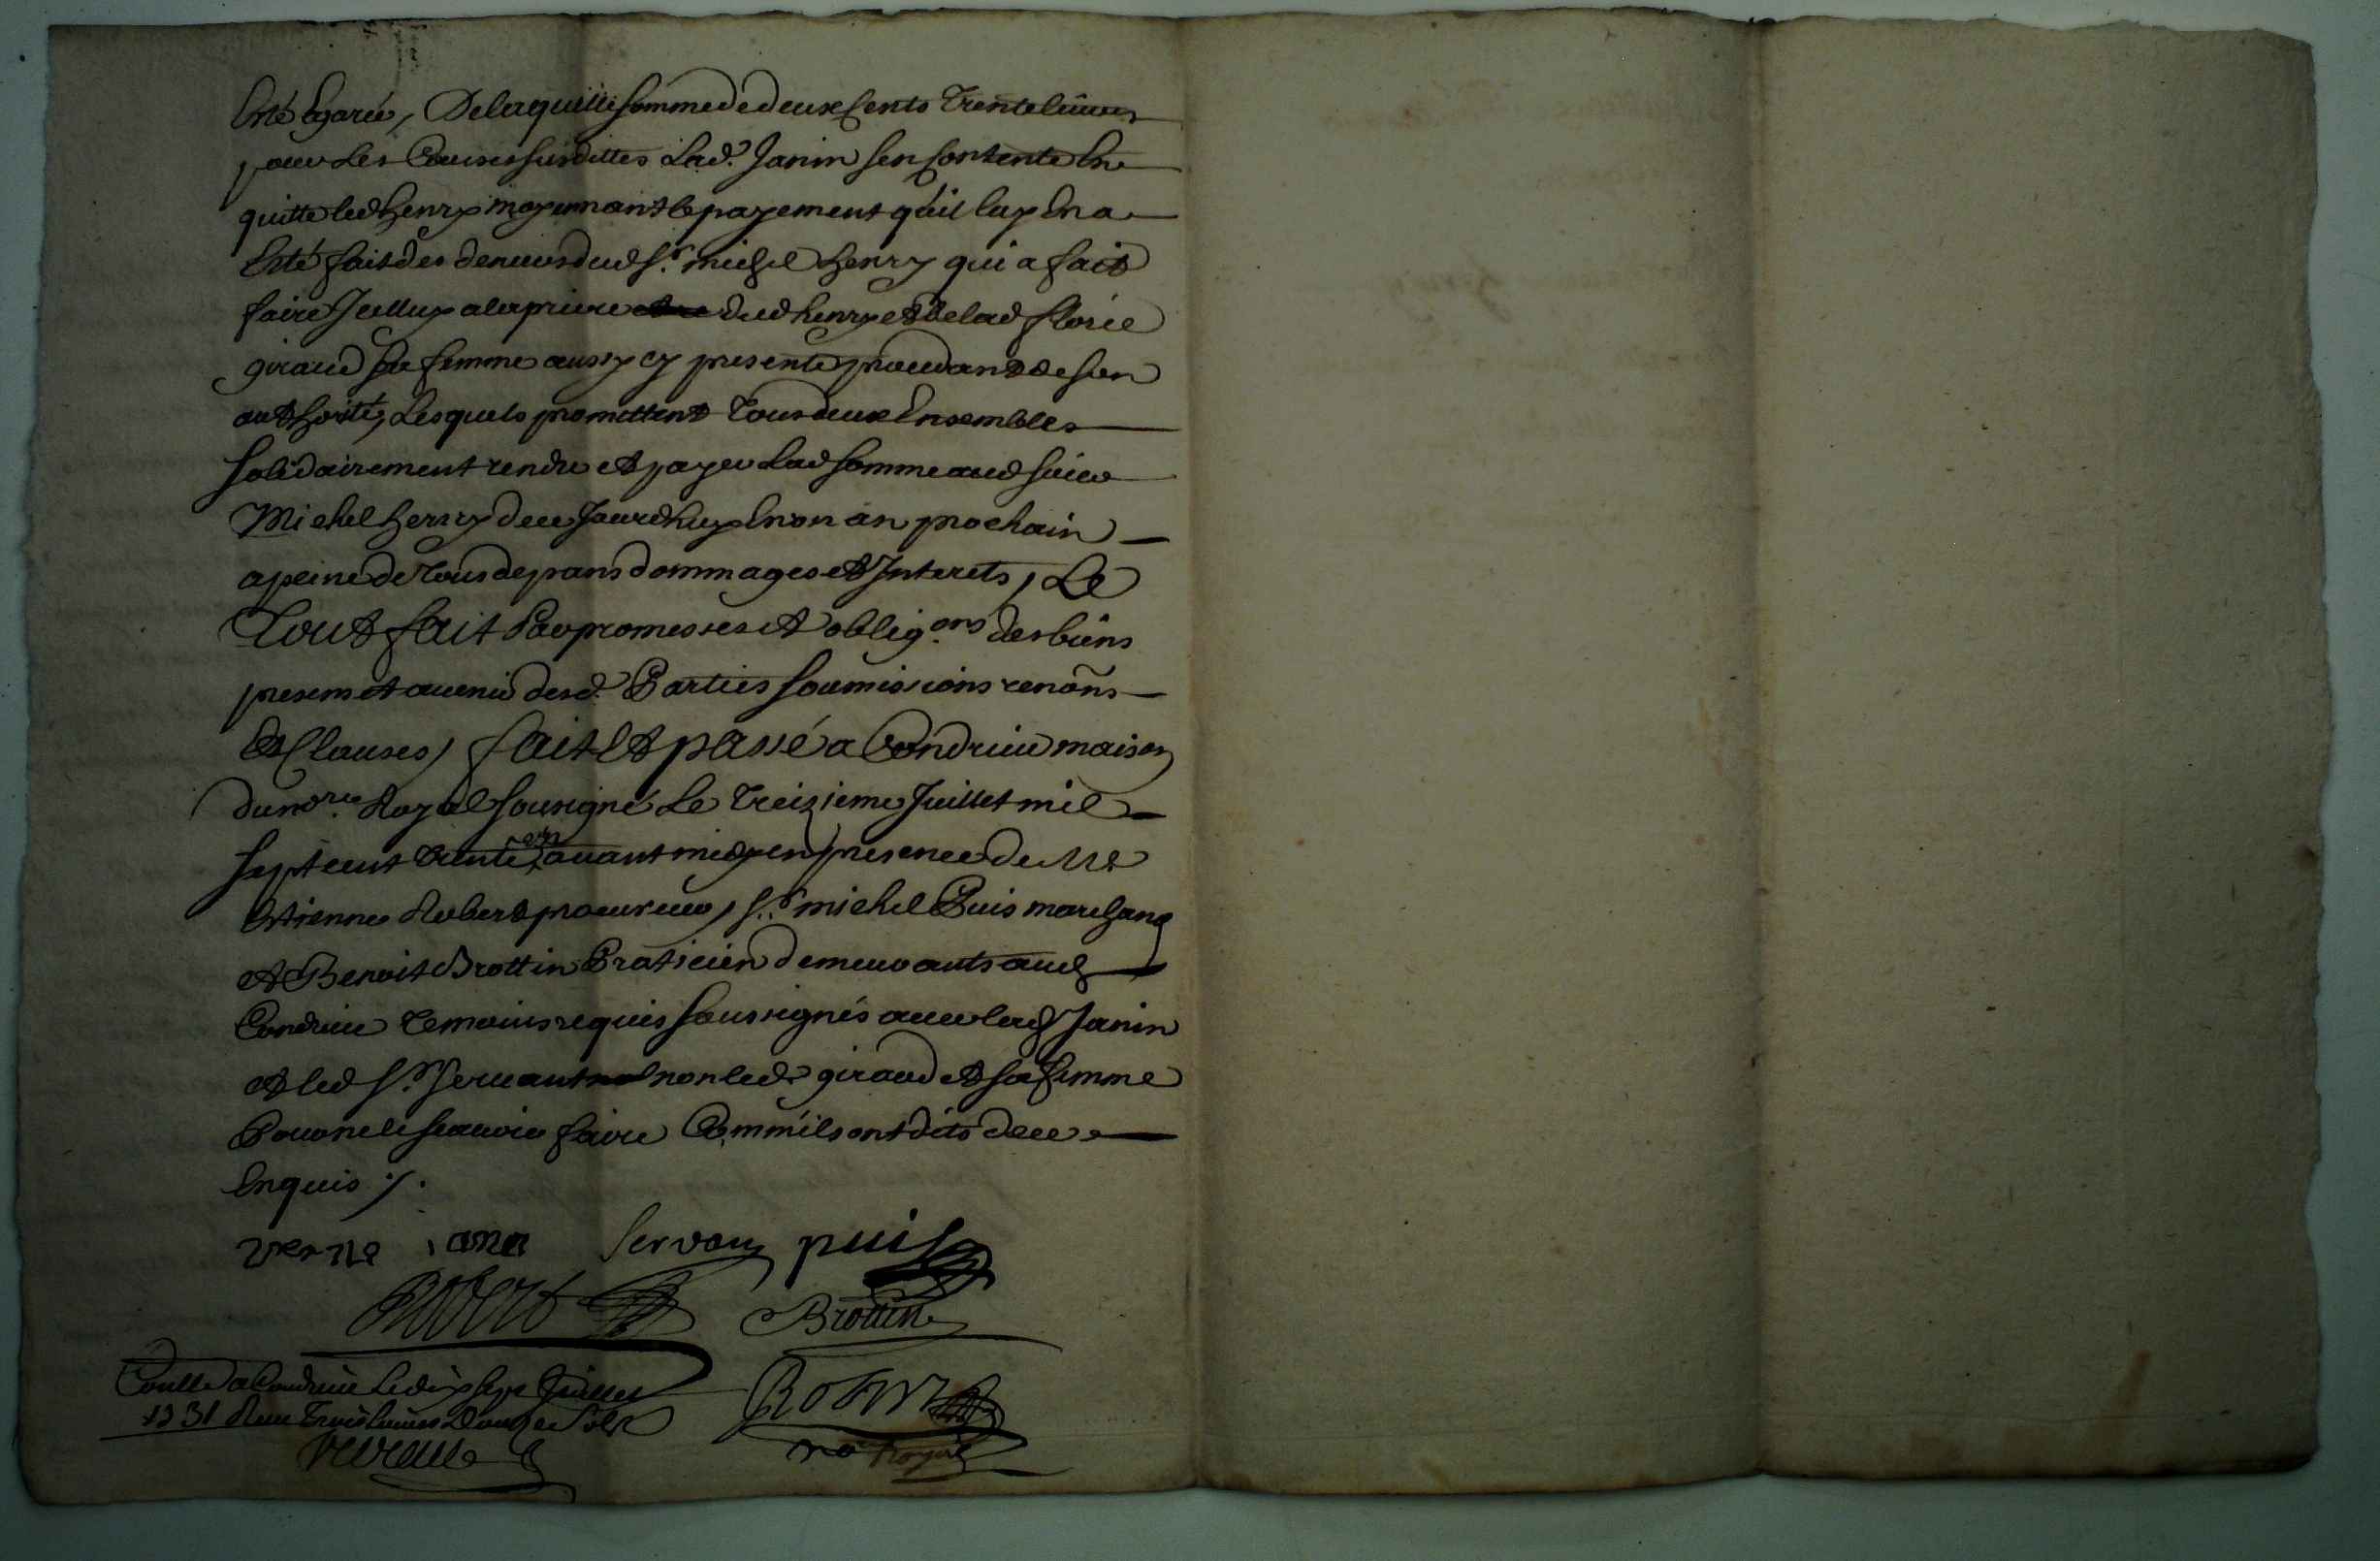 Esté Egarée, Delaquelle somme de deux Cents Trente livres
pour les Causes susdittes Lad.e Janin sen Contente En
quitte led henry moyennant le payement quil luy En a
Esté fait des deniers dud Sr. michel henry qui a fait
faire Jcelluy a la priere dud henry Et de lad florie
giraud sa femme aussy cy presente procedant de son
authorité, Lesquels promettent Tous deux Ensembles
solidairement rendre et payer Lad somme aud sieur
Michel henry de ce Jourdhuy En on an prochain
a peine de Tous depans dommages et Interets, Le
Tout fait Par promesses et oblig.ons des biens
presens et avenir desd. Parties soumissions renons
Et Clauses, fait Et passé a Condrieu maison
du nore. Royal sousigné Le Treizieme Juillet mil
sept cent trente un avant midy en presence de Me
Estienne Robert procureur, Sr. michel Puis marchand
et Benoit Brottin Praticien demeurants aud
Condrieu Temoins requis soussignés avec lad Janin
et led Sr. Servant non led giraud et sa femme
Pour ne le scavoir faire Comm'ils ont dits de ce
Enquis ·/·
verne iana servan puis
Robert Brottin
Conllé a Condrieu Le dix sept Juillet
1731 Reçu Trois livres Douze sols Robert
no Royal